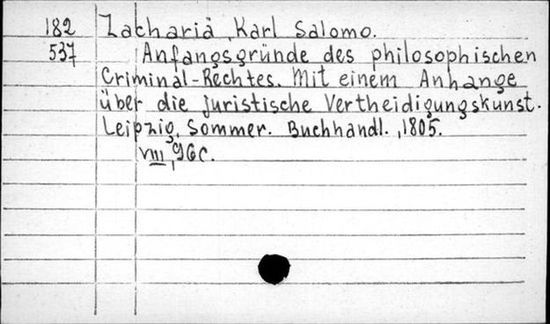 182 Zachariä, Karl Salomo.
537 Anfangsgründe des philosophischen
Criminal-Rechtes. Mit einem Anhange
über die juristische Vertheidigungskunst.
Leipzig, Sommer. Buchhandl., 1805.
VIII, 96 C.